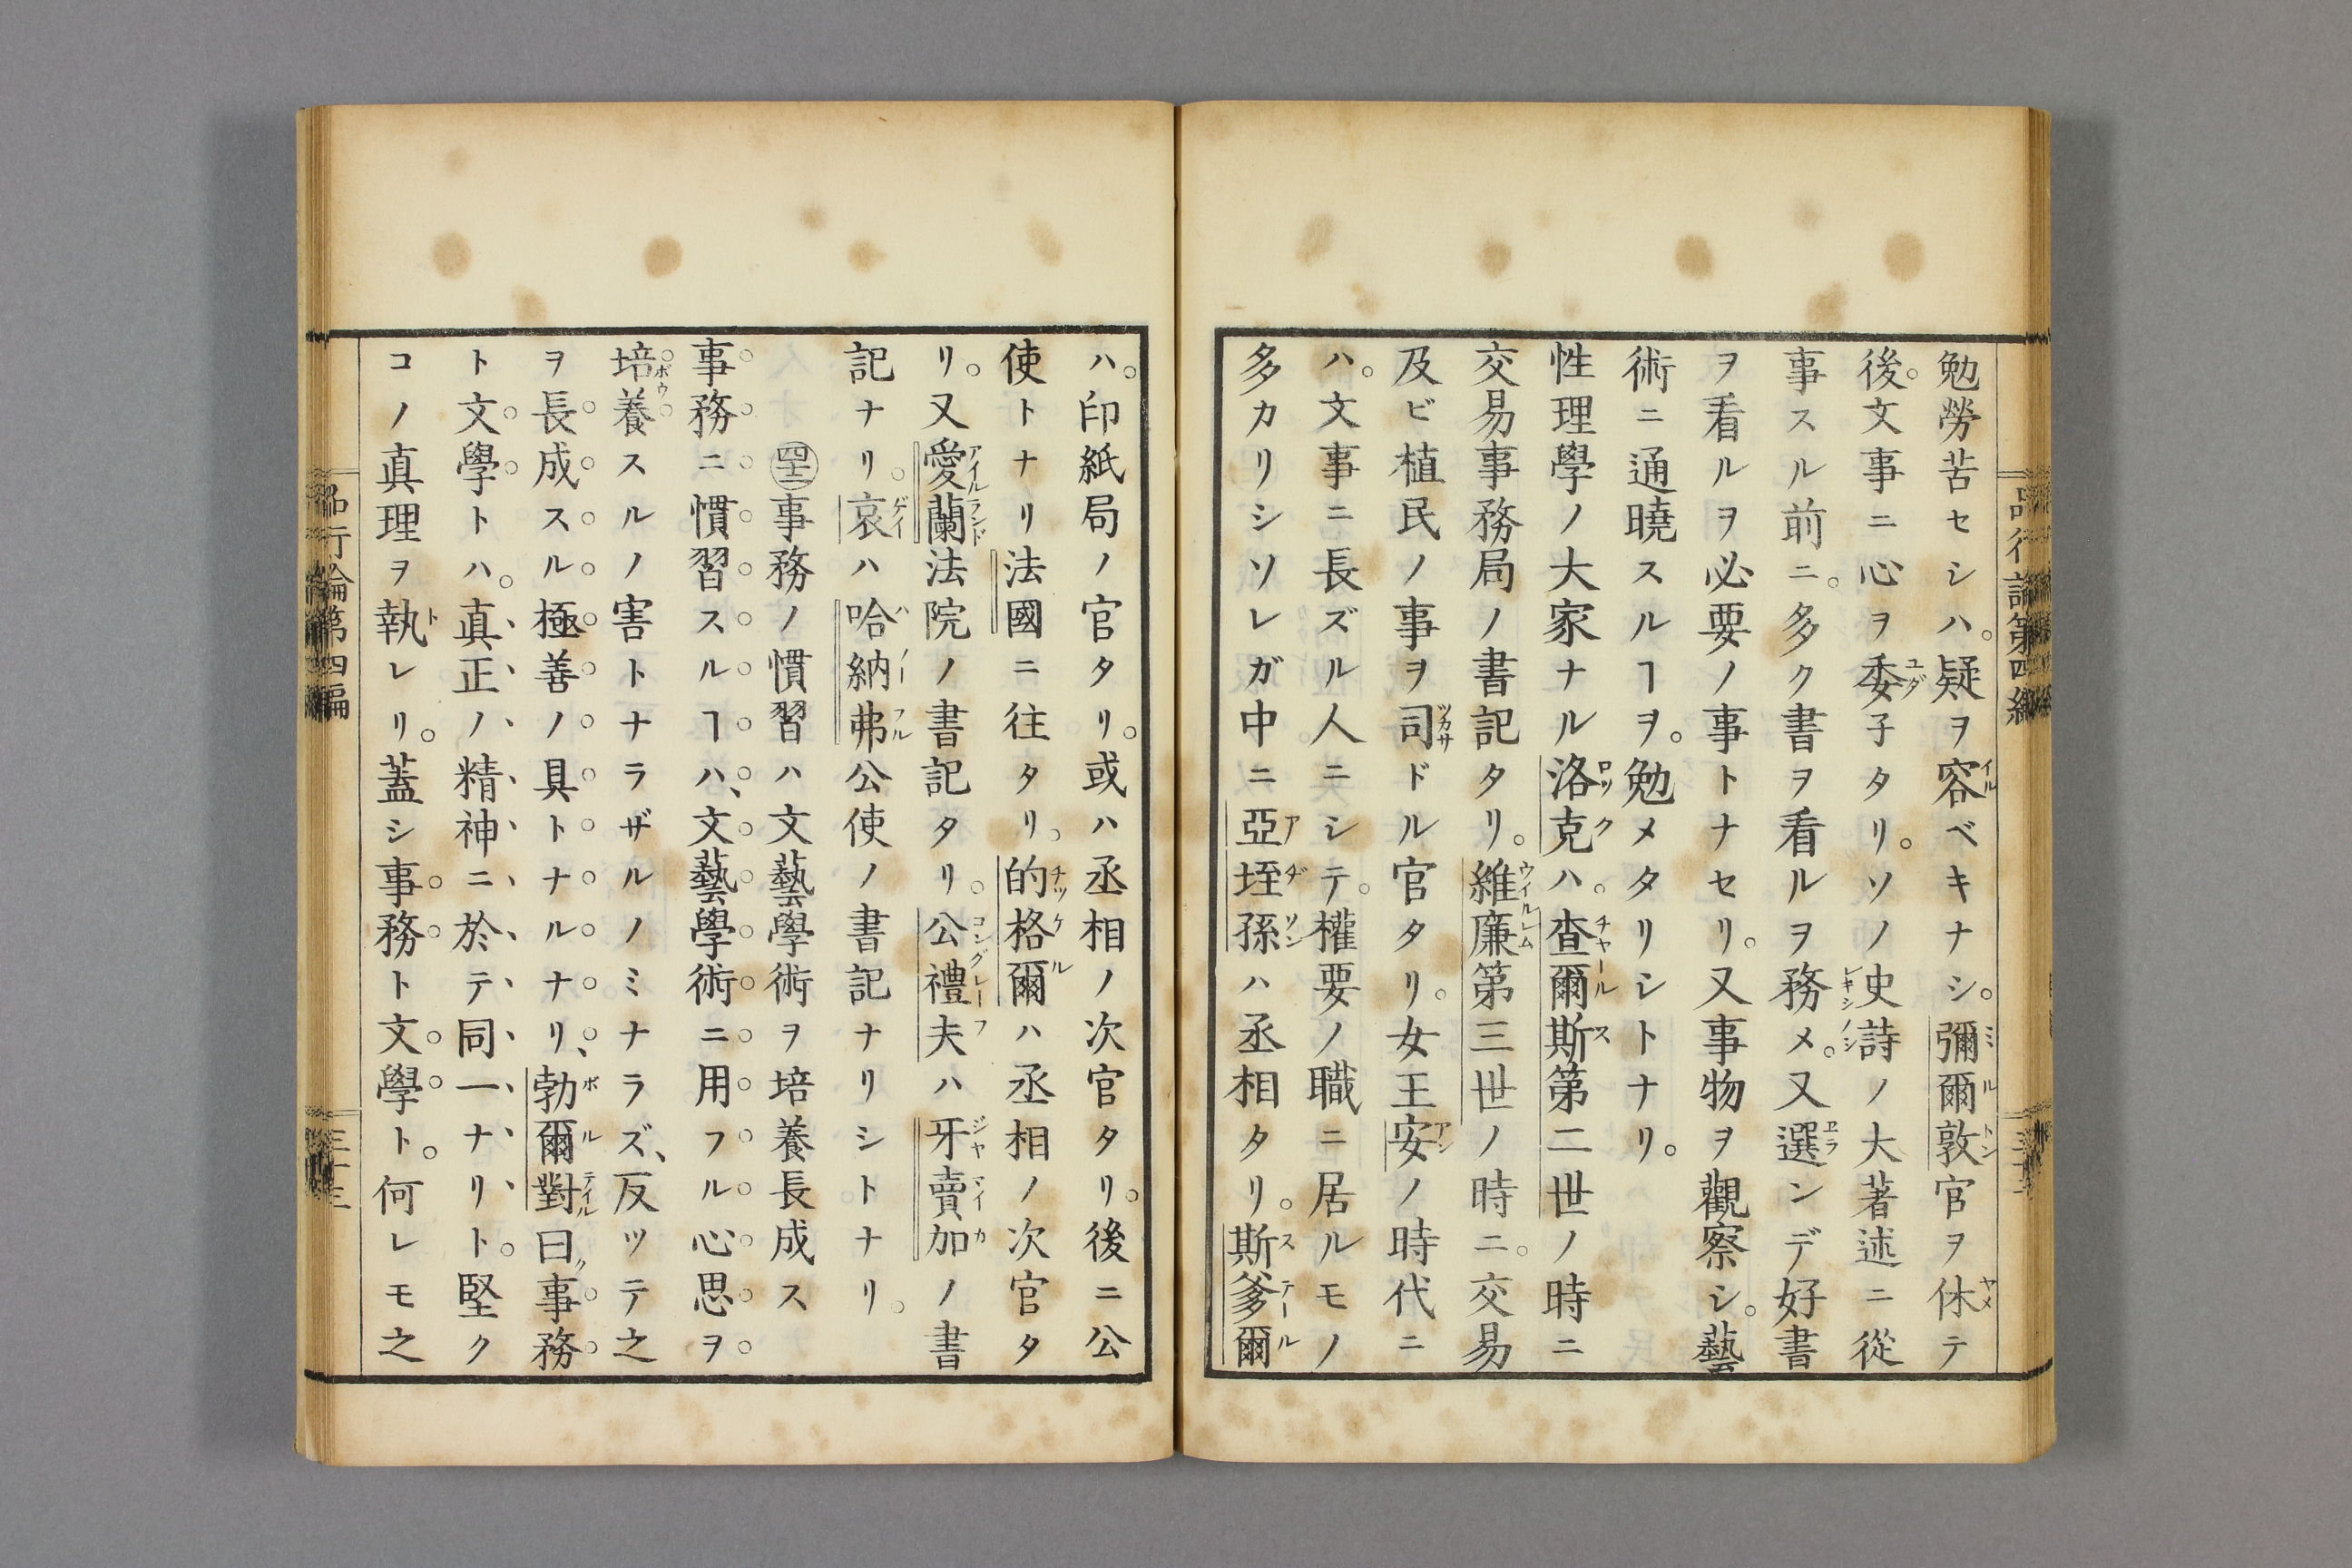 勉勞苦セシハ。疑ヲ容ベキナシ。彌爾敦官ヲ休テ
後。文事ニ心ヲ委子タリ。ソノ史詩ノ大著述ニ從
事スル前ニ。多ク書ヲ看ルヲ務メ。又選ンデ好書
ヲ看ルヲ必要ノ事トナセリ。又事物ヲ觀察シ。藝
術ニ通曉スルヿヲ。勉メタリシトナリ。
性理學ノ大家ナル洛克ハ。査爾斯第二世ノ時ニ
交易事務局ノ書記タリ。維廉第三世ノ時ニ。交易
及ビ植民ノ事ヲ司ドル官タリ。女王安ノ時代ニ
ハ。文事ニ長ズル人ニシテ。權要ノ職ニ居ルモノ
多カリシソレガ中ニ亞垤孫ハ丞相タリ。斯爹爾
ハ。印紙局ノ官タリ。或ハ丞相ノ次官タリ。後ニ公
使トナリ法國ニ往タリ。的格爾ハ丞相ノ次官タ
リ。又愛蘭法院ノ書記タリ。公禮夫ハ牙賣加ノ書
記ナリ。哀ハ哈納弗公使ノ書記ナリシトナリ。
㊷事務ノ慣習ハ文藝學術ヲ培養長成ス
事務ニ慣習スルヿハ、文藝學術ニ用フル心思ヲ
培養スルノ害トナラザルノミナラズ、反ツテ之
ヲ長成スル極善ノ具トナルナリ、勃爾對曰事務
ト文學トハ。真正ノ精神ニ於テ同一ナリト。堅ク
コノ真理ヲ執レリ。蓋シ事務ト文學ト。何レモ之
品行論第四編
三十三